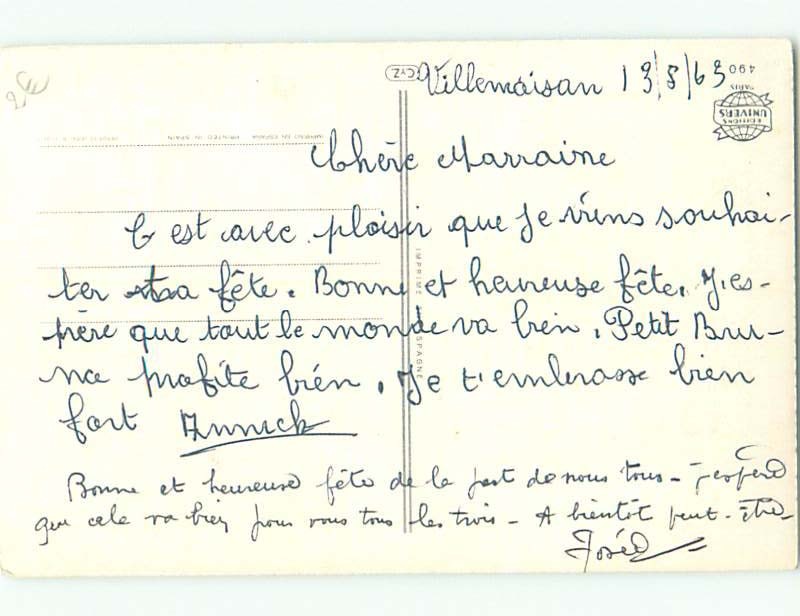 Villemoisan 13/8/63
490
CYZ
EDITIONS
UNIVERS
PARIS
IMPRIMÉ EN ESPAGNE
PRINTED IN SPAIN
Chère Marraine
C est avec plaisir que je viens souhai-
ter ta fête. Bonne et heureuse fête. J'es-
père que tout le monde va bien. Petit Bru-
no profite bien. Je t'embrasse bien
fort Annick
Bonne et heureuse fête de la part de nous tous - j'espère
que cela va bien pour vous tous les trois - A bientôt peut-être
Josée